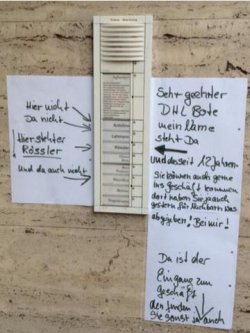 Hier nicht
Da nicht
Hier steht er
Rössler
und da auch nicht
Sehr geehrter
DHL Bote
mein Name
steht Da
Und das seit 12 Jahren
Sie können auch gerne
ins Geschäft kommen
dort haben Sie ja auch
gestern für Nachbarn was
abgegeben! Bei mir!
Da ist der
Eingang zum
Geschäft
den finden
Sie sonst ja auch